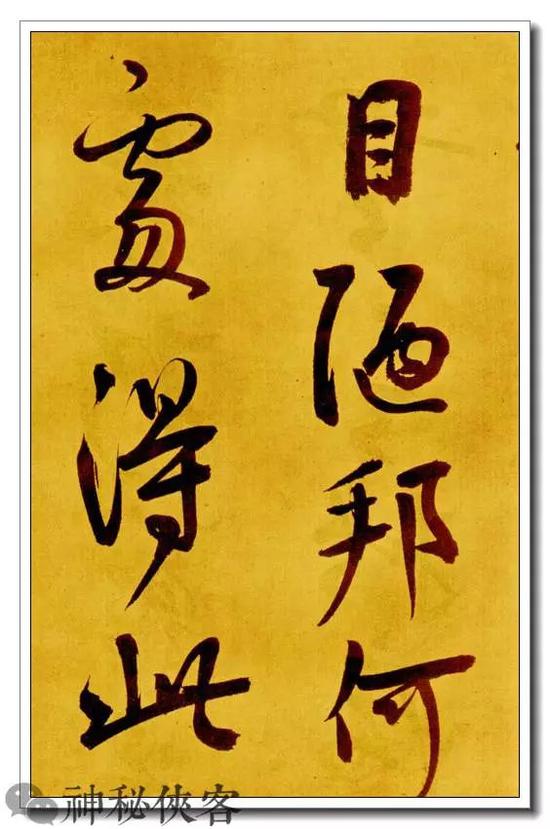 目陋邦何
處得此
神秘俠客